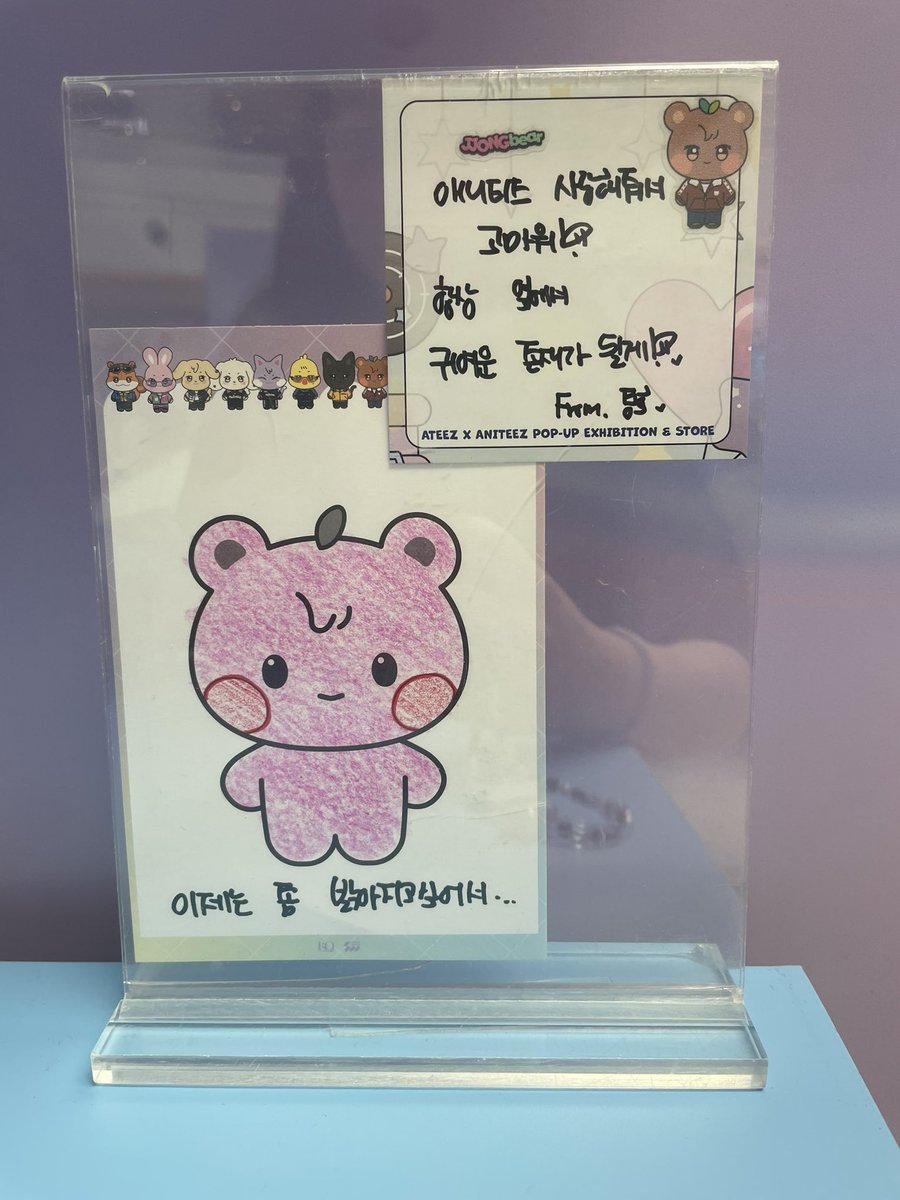 JJONGbear
애니티즈 사랑해줘서
고마워!♡
항상 옆에서
귀여운 존재가 될게!♡
From. 쫑♥
ATEEZ X ANITEEZ POP-UP EXHIBITION & STORE
이제는 좀 밝아지고싶어서...